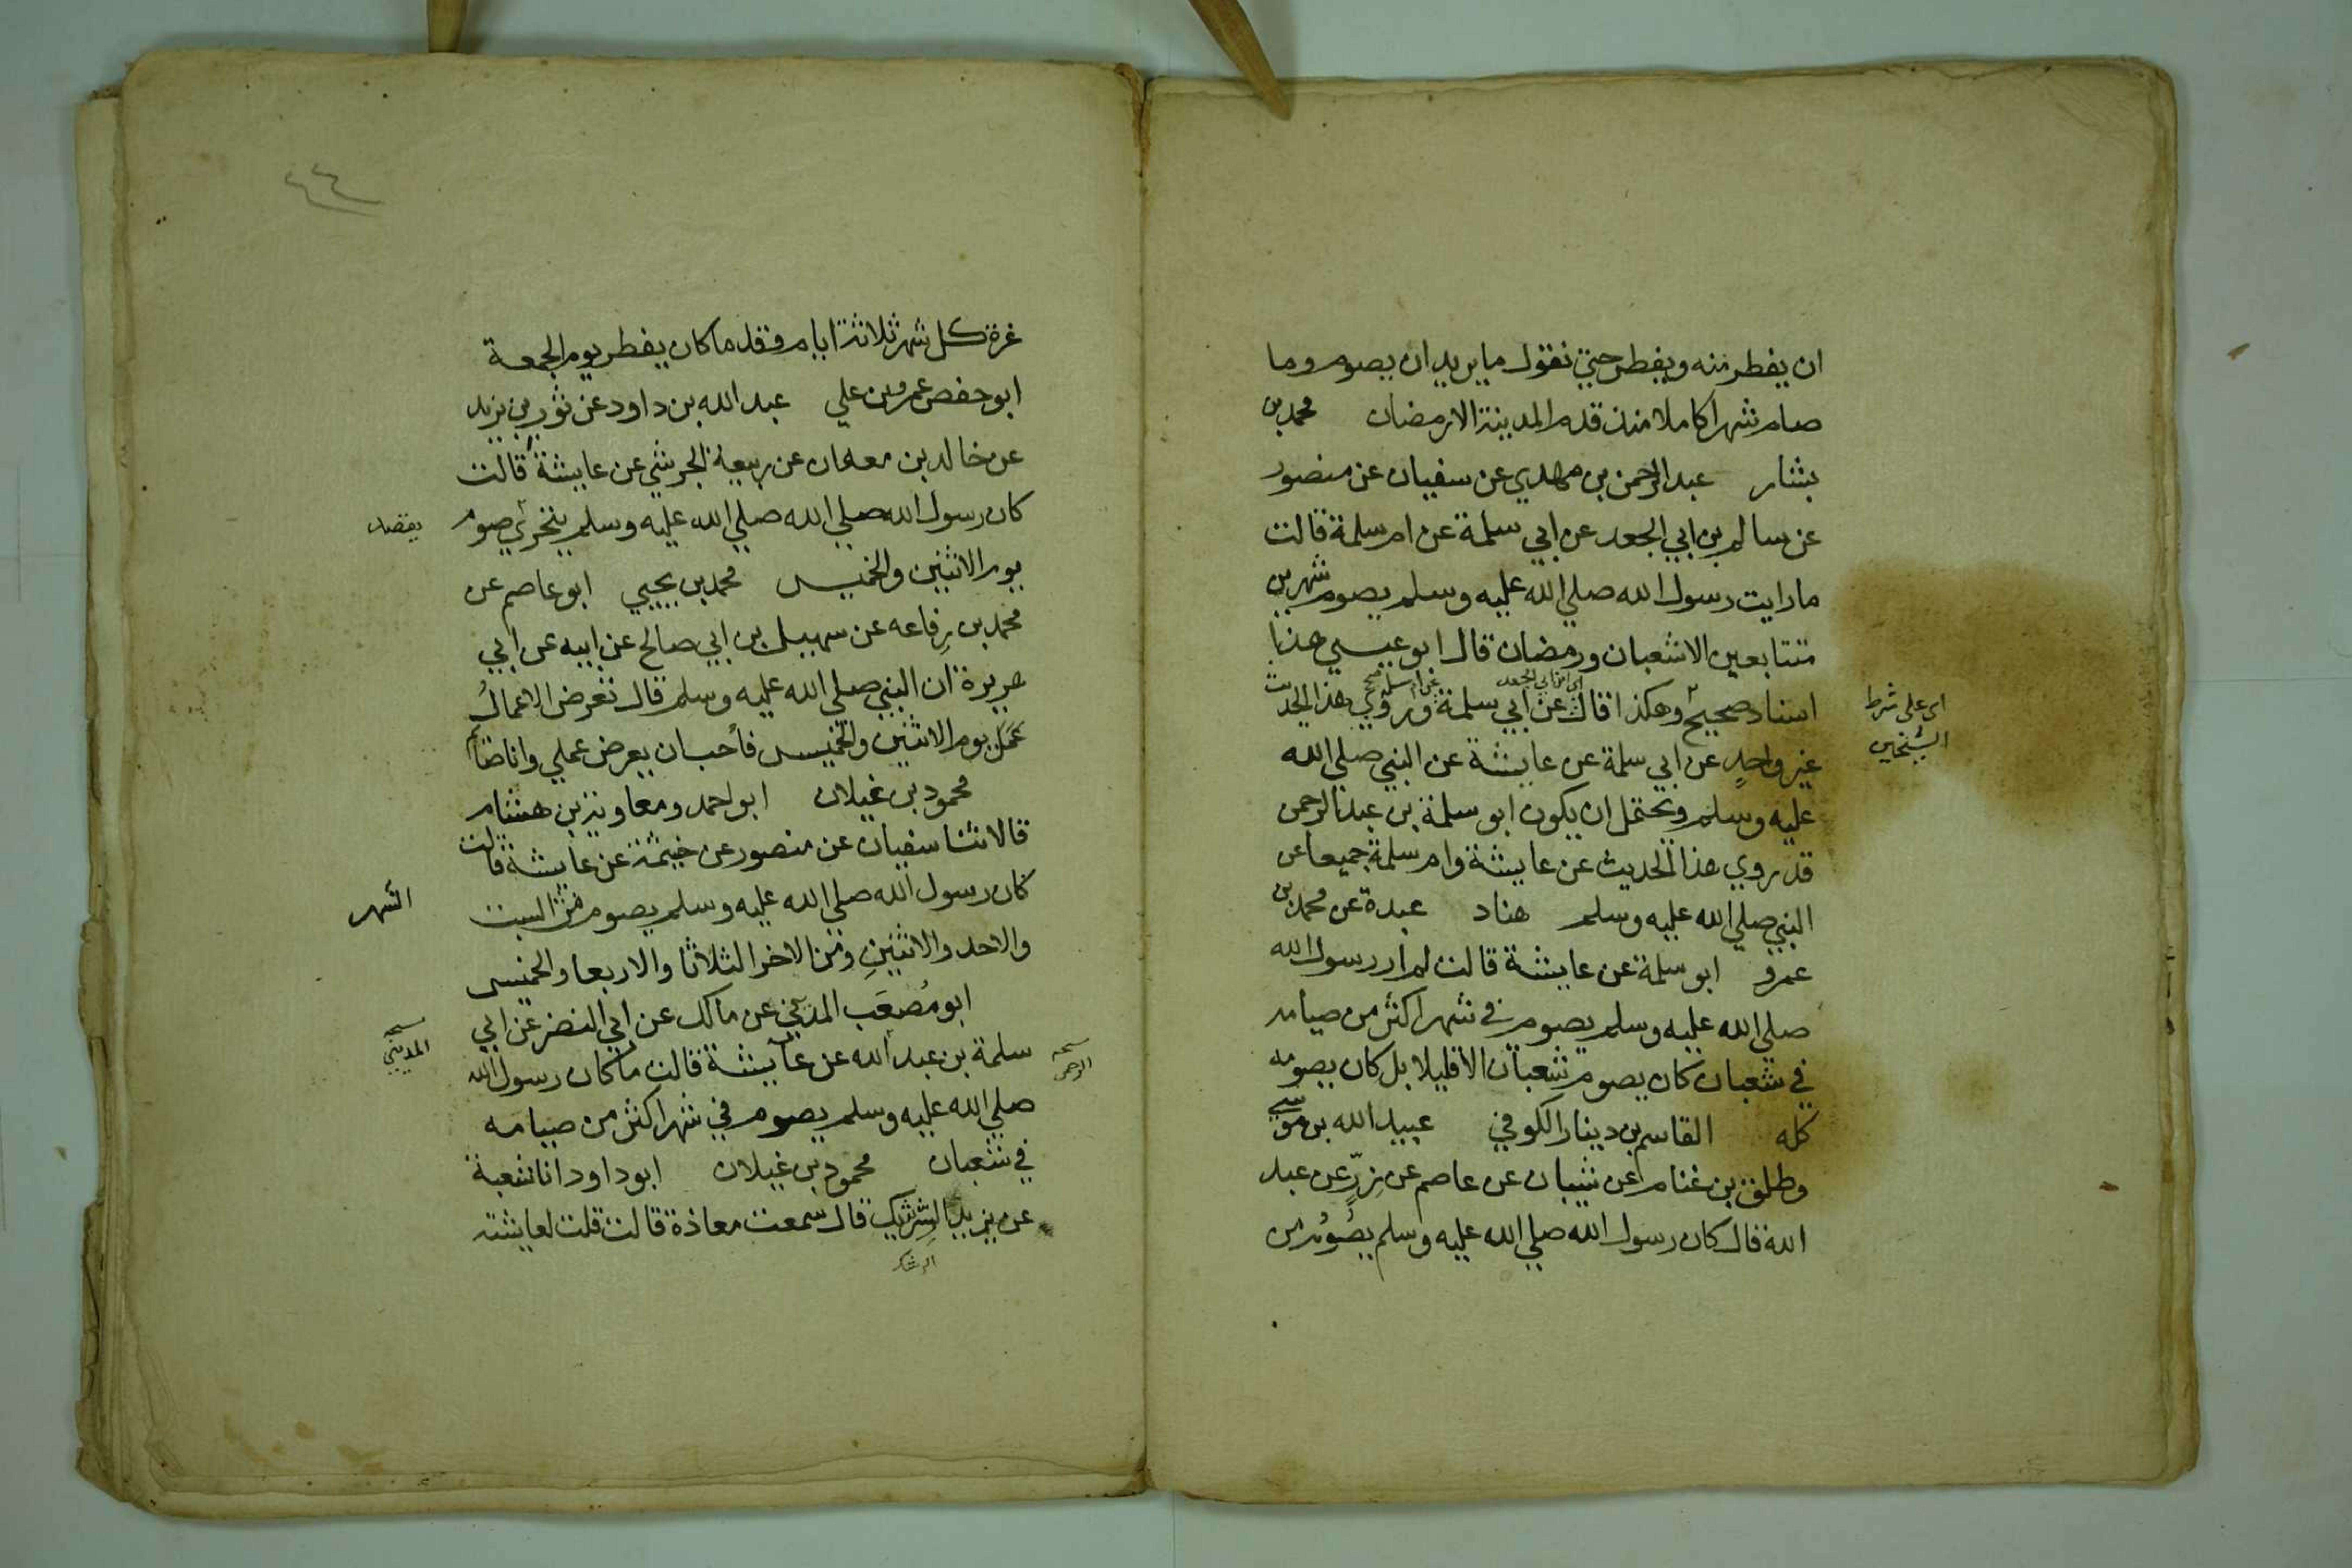 ان يفطر منه ويفطر حتي نقول ما يريد ان يصوم وما
صام شهرا كاملا منذ قدم المدينة الا رمضان محمد بن
بشار عبد الرحمن بن مهدي عن سفيان عن منصور
عن سالم بن ابي الجعد عن ابي سلمة عن ام سلمة قالت
ما رايت رسول الله صلي الله عليه وسلم يصوم شهرين
متتابعين الا شعبان ورمضان قال ابو عيسي هذا
اي ابن ابي الجعد
عن ام سلمة صح
اسناد صحيح وهكذا قال عن ابي سلمة وروي هذا الحديث
اي على شرط
الشيخين
غير واحدٍ عن ابي سلمة عن عايشة عن النبي صلي الله
عليه وسلم ويحتمل ان يكون ابو سلمة بن عبد الرحمن
قد روي هذا الحديث عن عايشة وام سلمة جميعا عن
النبي صلي الله عليه وسلم هناد عبدة عن محمد بن
عمرو ابو سلمة عن عايشة قالت لم ار رسول الله
صلي الله عليه وسلم يصوم في شهر اكثر من صيامه
في شعبان كان يصوم شعبان الا قليلا بل كان يصومه
كله القاسم بن دينار الكوفي عبيد الله بن موسي
وطلق بن غنام عن شيبان عن عاصم عن زِرٍّ عن عبد
الله قال كان رسول الله صلي الله عليه وسلم يصُومُ من
٤٤
غرة كل شهر ثلاثة ايام وقل ما كان يفطر يوم الجمعة
ابو حفص عمرو بن علي عبد الله بن داود عن ثور بن يزيد
عن خالد بن معدان عن ربيعة الجرشي عن عايشة قالت
كان رسول الله صلي الله صلي الله عليه وسلم يتحري صوم
يقصد
يوم الاثنين والخميس محمد بن يحيي ابو عاصم عن
محمد بن رِفاعه عن سهيل بن ابي صالح عن ابيه عن ابي
هريرة ان النبي صلي الله عليه وسلم قال تعرض الاعمالُ
يوم الاثنين والخميس فأحب ان يعرض عملي وانا صائم
محمود بن غيلان ابو احمد ومعاوية بن هشام
قالا ثنا سفيان عن منصور عن خيثمة عن عايشة قالت
كان رسول الله صلي الله عليه وسلم يصوم من السبت
الشهر
والاحد والاثنينِ ومن الاخر الثلاثا والاربعا والخميس
ابو مُصعَب المدني عن مالك عن ابي النضر عن ابي
نسخه
المديني
سلمة بن عبد الله عن عايشة قالت ما كان رسول الله
نسخه
الرحمن
صلي الله عليه وسلم يصوم في شهر اكثر من صيامه
في شعبان محمود بن غيلان ابو داود انا شعبة
عن يزيد الشريك قال سمعت معاذة قالت قلت لعايشة
الرشك